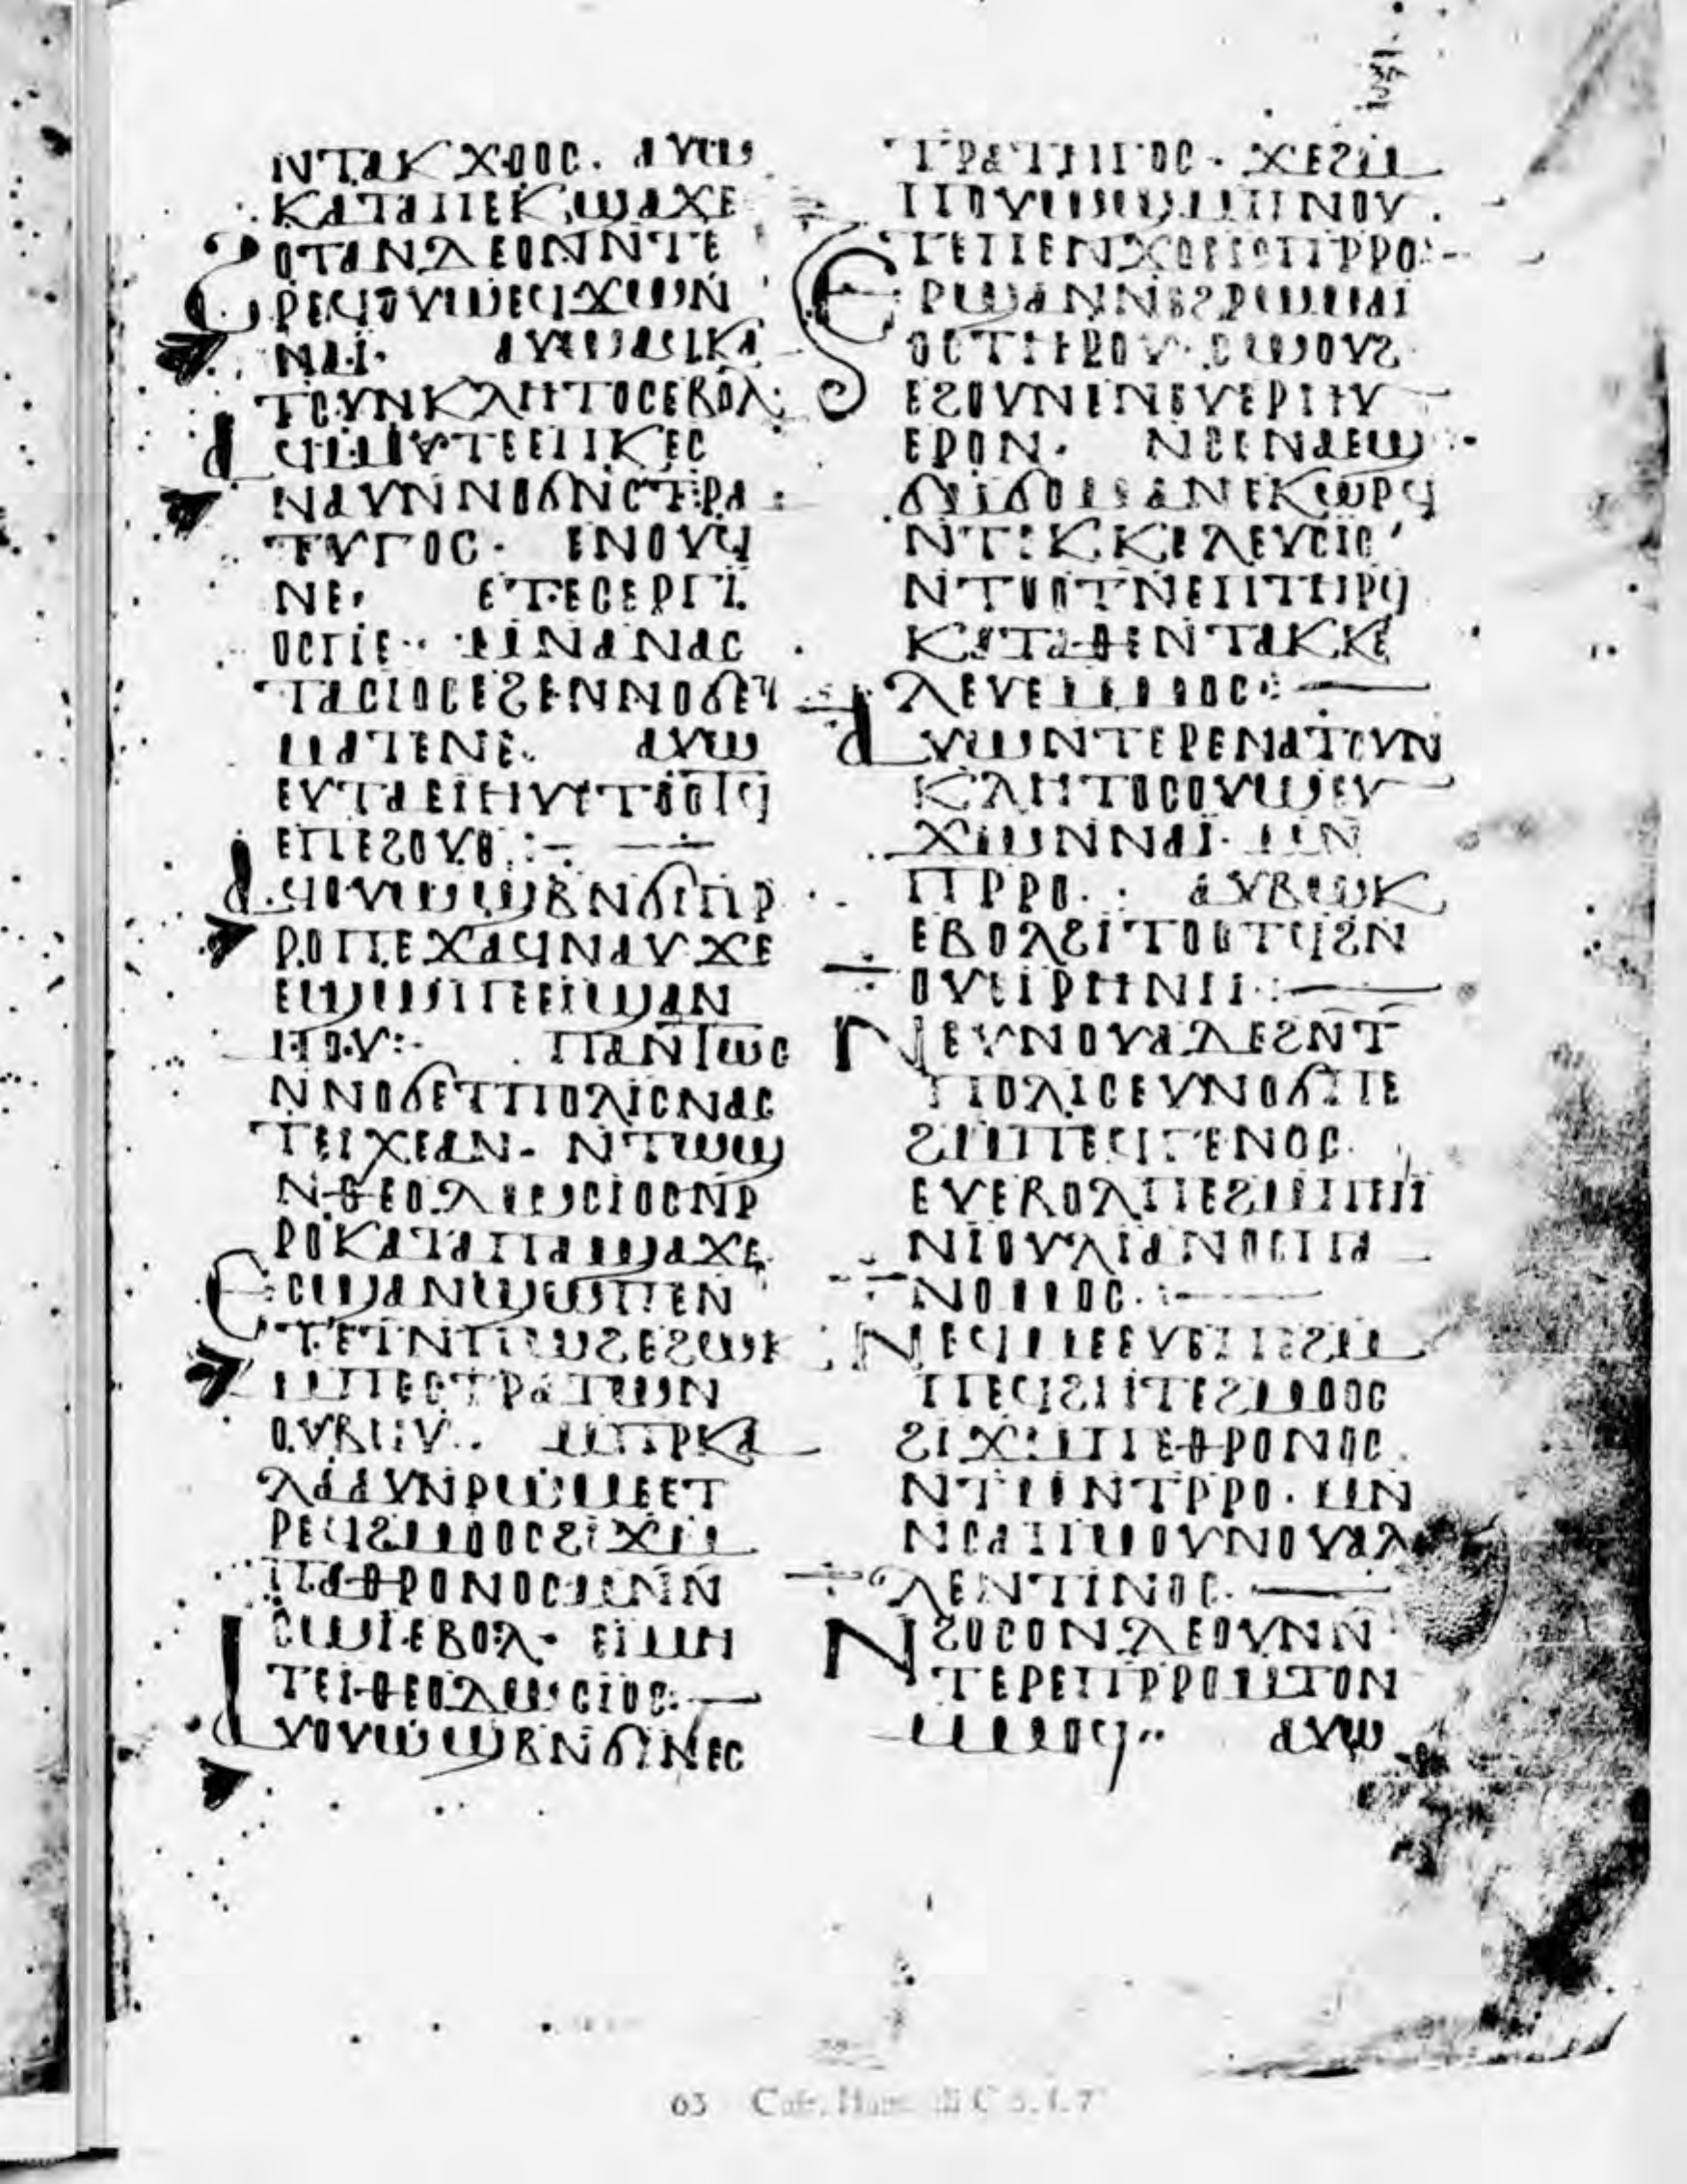 ⲛⲧⲁⲕϫⲟⲟⲥ. ⲁⲩⲱ
ⲕⲁⲧⲁⲡⲉⲕϣⲁϫⲉ
ϩⲟⲧⲁⲛⲇⲉⲟⲛⲛⲧⲉ
ⲣⲉϥⲟⲩⲱⲉϥϫⲱⲛ
ⲛⲁⲓ̈. ⲁⲩⲱⲁϥⲕⲁ
ⲧⲥⲩⲛⲕⲗⲏⲧⲟⲥⲉⲃⲟⲗ
ⲁϥⲙⲟⲩⲧⲉⲉⲡⲕⲉⲥ
ⲛⲁⲩⲛⲛⲟϭⲛⲥⲧⲣⲁ
ⲧⲩⲅⲟⲥ. ⲉⲛⲟⲩϥ
ⲛⲉ. ⲉⲧⲉⲥⲉⲣⲅⲓ̈
ⲟⲥⲡⲉ. ⲙⲛⲁⲛⲁⲥ
ⲧⲁⲥⲓⲟⲥⲉϩⲉⲛⲛⲟϭⲉⲩ
ⲙⲁⲧⲉⲛⲉ. ⲁⲩⲱ
ⲉⲩⲧⲁⲉⲓⲏⲩⲛⲧⲟⲟⲧϥ
ⲉⲡⲉϩⲟⲩⲟ:—
ⲁϥⲟⲩⲱϣⲃⲛϭⲓⲡⲣ
ⲣⲟⲡⲉϫⲁϥⲛⲁⲩϫⲉ
ⲉϣⲱⲡⲉⲉⲓϣⲁⲛ
ⲙⲟⲩ: ⲡⲁⲛⲧⲱⲥ
ⲛⲛⲟϭⲉⲧⲡⲟⲗⲓⲥⲛⲁⲥ
ⲧⲉⲓϫⲉⲁⲛ. ⲛⲧⲱϣ
ⲛⲑⲉⲟⲇⲱⲥⲓⲟⲥⲛⲣ
ⲣⲟⲕⲁⲧⲁⲡⲁϣⲁϫⲉ
ⲉⲥϣⲁⲛϣⲱⲡⲉⲛ
ⲧⲉⲧⲛⲡⲱϩⲉϩⲱⲕ
ⲙⲡⲉⲥⲧⲣⲁⲧⲱⲛ
ⲟⲩⲃⲏⲩ. ⲙⲡⲣⲕⲁ
ⲗⲁⲁⲩⲛⲣⲱⲙⲉⲉⲧ
ⲣⲉϥϩⲙⲟⲟⲥϩⲓϫⲙ
ⲡⲁⲑⲣⲟⲛⲟⲥⲙⲛⲛ
ⲥⲱⲓ̈ⲉⲃⲟⲗ. ⲉⲓⲙⲏ
ⲧⲉⲓⲑⲉⲟⲇⲱⲥⲓⲟⲥ.—
ⲁⲩⲟⲩⲱϣⲃⲛϭⲓⲛⲉⲥ
ⲧⲣⲁⲧⲏⲅⲟⲥ. ϫⲉϩⲙ
ⲡⲟⲩⲱϣⲙⲡⲛⲟⲩ
ⲧⲉⲡⲉⲛϫⲟⲉⲓⲥⲡⲣⲣⲟ:—
ⲉⲣϣⲁⲛⲛⲉϩⲣⲱⲙⲁⲓ
ⲟⲥⲧⲏⲣⲟⲩ. ⲥⲱⲟⲩϩ
ⲉϩⲟⲩⲛⲉⲛⲉⲩⲉⲣⲏⲩ
ⲉⲣⲟⲛ. ⲛⲥⲉⲛⲁⲉϣ
ϭⲙϭⲟⲙⲁⲛⲉⲕⲱⲣϥ
ⲛⲧⲉⲕⲕⲉⲗⲉⲩⲥⲓⲥ
ⲛⲧⲟⲟⲧⲛⲉⲡⲧⲏⲣϥ
ⲕⲁⲧⲁⲑⲉⲛⲧⲁⲕⲕⲉ
ⲗⲉⲩⲉⲙⲙⲟⲥ:—
ⲁⲩⲱⲛⲧⲉⲣⲉⲛⲁⲧⲥⲩⲛ
ⲕⲗⲏⲧⲟⲥⲟⲩⲱⲉⲩ
ϫⲱⲛⲛⲁⲓ̈. ⲙⲛ
ⲡⲣⲣⲟ. ⲁⲩⲃⲱⲕ
ⲉⲃⲟⲗϩⲓⲧⲟⲟⲧϥϩⲛ
ⲟⲩⲉⲓⲣⲏⲛⲏ:—
ⲛⲉⲩⲛⲟⲩⲁⲇⲉϩⲛⲧ
ⲡⲟⲗⲓⲥⲉⲩⲛⲟϭⲡⲉ
ϩⲙⲡⲉϥⲅⲉⲛⲟⲥ.
ⲉⲩⲉⲃⲟⲗⲡⲉϩⲙⲡⲏ
ⲛⲓⲟⲩⲗⲓⲁⲛⲟⲥⲡⲁ
ⲛⲟⲙⲟⲥ.:—
ⲛⲉϥⲙⲉⲉⲩⲉⲡⲉϩⲙ
ⲡⲉϥϩⲏⲧⲉϩⲙⲟⲟⲥ
ϩⲓϫⲙⲡⲉⲑⲣⲟⲛⲟⲥ.
ⲛⲧⲙⲛⲧⲣⲣⲟ. ⲙⲛ
ⲛⲥⲁⲡⲙⲟⲩⲛⲟⲩⲁⲗ
ⲗⲉⲛⲧⲓⲛⲟⲥ.—
ⲛϩⲟⲥⲟⲛⲇⲉⲟⲩⲛⲛ
ⲧⲉⲣⲉⲡⲣⲣⲟⲙⲧⲟⲛ
ⲙⲙⲟϥ.. ⲁⲩⲱ